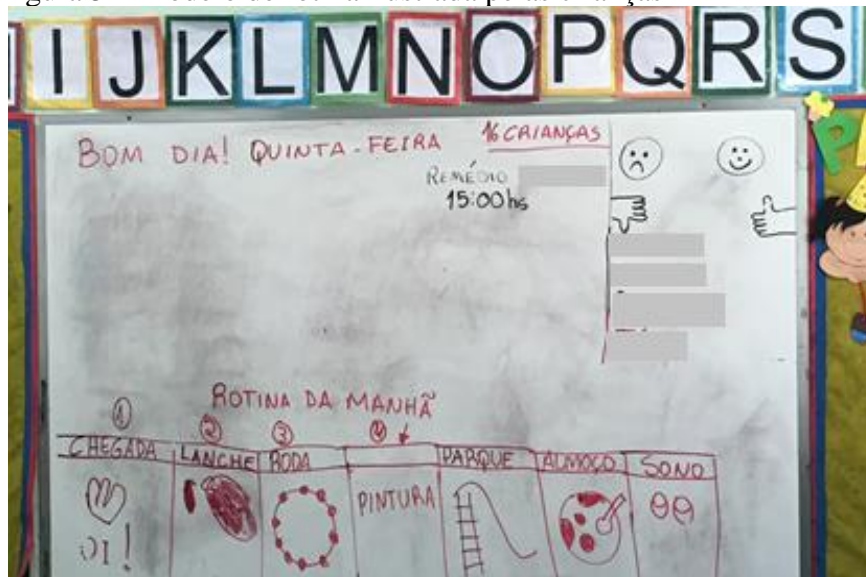 I J K L M N O P Q R S
BOM DIA! QUINTA-FEIRA 16 CRIANÇAS
REMÉDIO
15:00hs
ROTINA DA MANHÃ
1 2 3 4
CHEGADA LANCHE RODA PARQUE ALMOÇO SONO
PINTURA
OI!